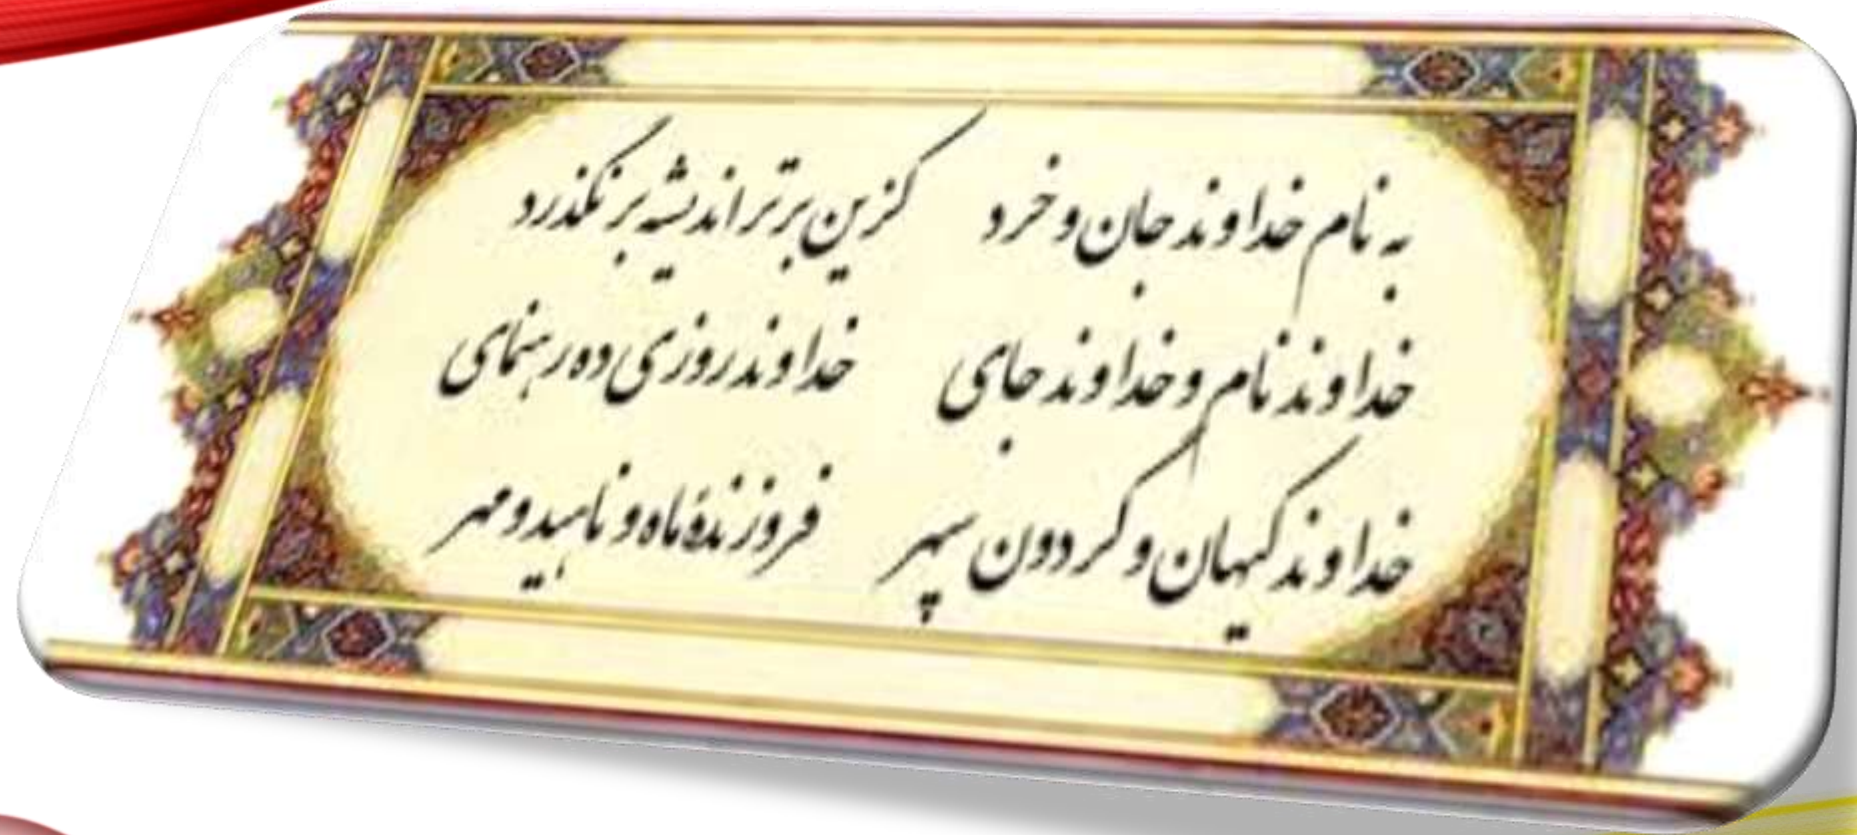 به نام خداوند جان و خرد کزین برتر اندیشه بر نگذرد
خداوند نام و خداوند جای خداوند روزی ده رهنمای
خداوند کیهان و گردون سپهر فروزندهٔ ماه و ناهید و مهر